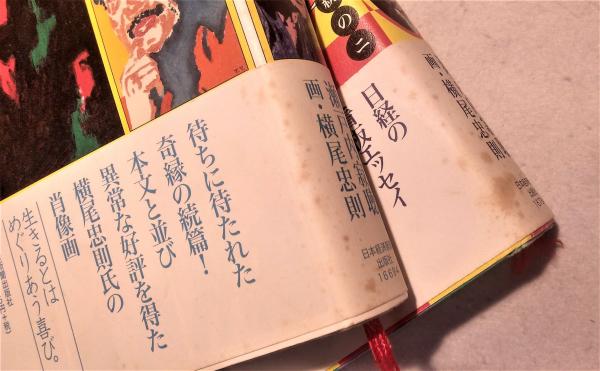 続の二
画・横尾忠則
日経の
重版エッセイ
日本経済新
出版社
瀬戸内寂聴
画・横尾忠則
日本経済新
出版社
16694
待ちに待たれた
奇縁の続篇!
本文と並び
異常な好評を得た
横尾忠則氏の
肖像画
生きるとは
めぐりあう喜び。